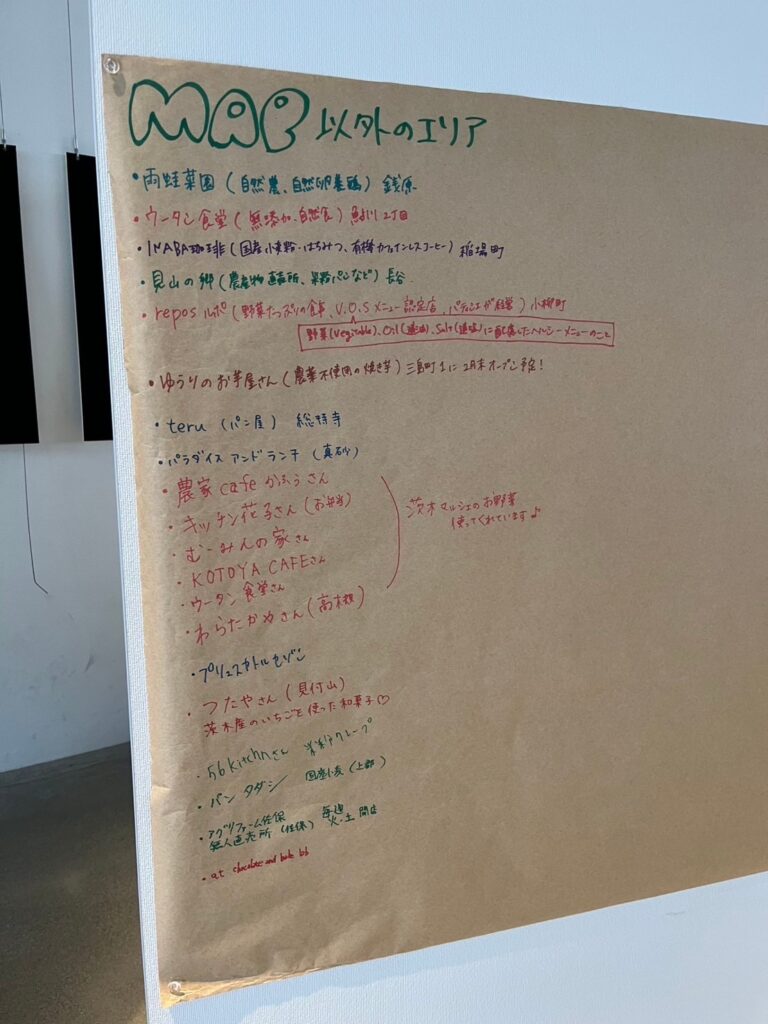 MAP 以外のエリア
・雨蛙菜園（自然農、自然卵養鶏）銭原
・ウータン食堂（無添加、自然食）鮎川2丁目
・INABA珈琲（国産小麦粉・はちみつ、有機カフェインレスコーヒー）稲場町
・見山の郷（農産物直売所、米粉パンなど）長谷
・repos ルポ（野菜たっぷりの食事、V.O.Sメニュー認定店、パティシエが経営）小柳町
野菜(Vegitable)、Oil(適油)、Salt(適塩)に配慮したヘルシーメニューのこと
・ゆうりのお芋屋さん（農薬不使用の焼き芋）三島町1に2月末オープン予定！
・teru （パン屋） 総持寺
・パラダイス アンド ランチ （真砂）
・農家cafe かふうさん
・キッチン花子さん（お弁当）
・むーみんの家さん
・KOTOYA CAFEさん
・ウータン食堂さん
・わらたかめさん（高槻）
茨木マルシェのお野菜
使ってくれています♪
・プリュスカトルセゾン
・つたやさん（見付山）
茨木産のいちごを使った和菓子♡
・56kitchnさん 米粉クレープ
・パン タダシ 国産小麦（上郡）
・アグリファーム佐保
無人直売所（佐保） 毎週 火・土 開店
・at chocolate and bake lab